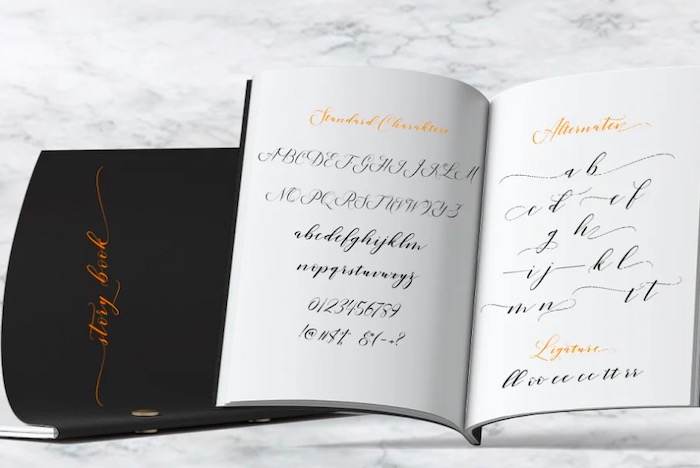 story book
Standard Charakters
ABCDEFGHIJKLM
NOPQRSTUVWXYZ
abcdefghijklm
nopqrstuvwxyz
0123456789
Alternates
a b
c d e f
g h
i j k l
m n r t
Ligature
ll oo ee cc tt rr